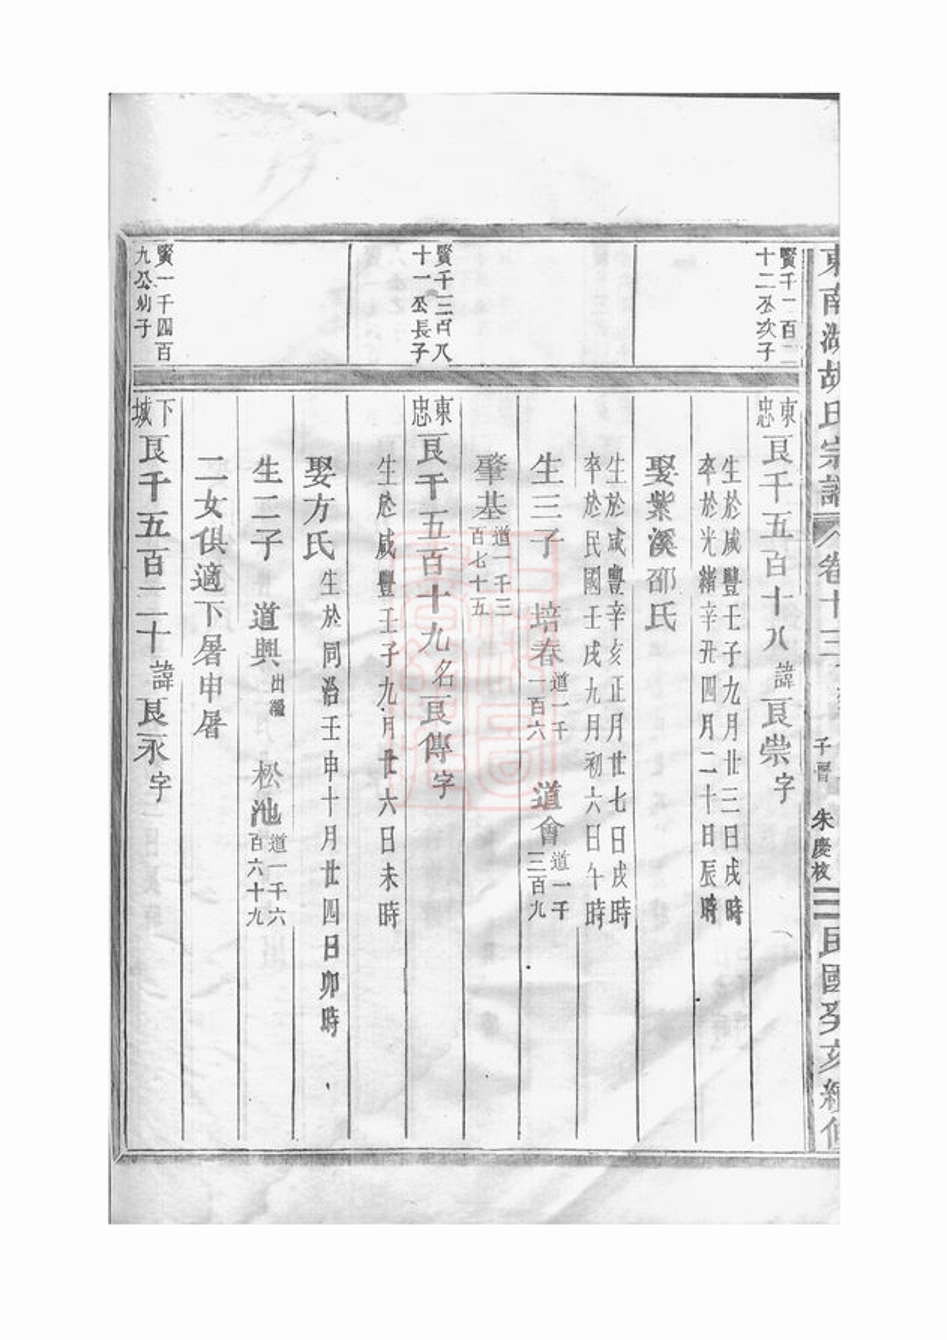 東南湖胡氏宗譜
卷十三
子晉 朱慶校
民國癸亥續修
賢千一百二
十二公次子
東忠
艮千五百十八 諱艮崇字
生於咸豐壬子九月廿三日戌時
卒於光緒辛丑四月二十日辰時
娶紫溪邵氏
生於咸豐辛亥正月廿七日戌時
卒於民國壬戌九月初六日午時
生三子 培春 道一千一百六 道會 道一千三百九
肇基 道一千三百七十五
賢千三百八
十一公長子
東忠
艮千五百十九 名艮傳字
生於咸豐壬子九月廿六日未時
娶方氏 生於同治壬申十月廿四日卯時
生二子 道興 出繼 松池 道一千六百六十九
二女俱適下暑申屠
賢一千四百
九公幼子
下城
艮千五百二十 諱艮永字